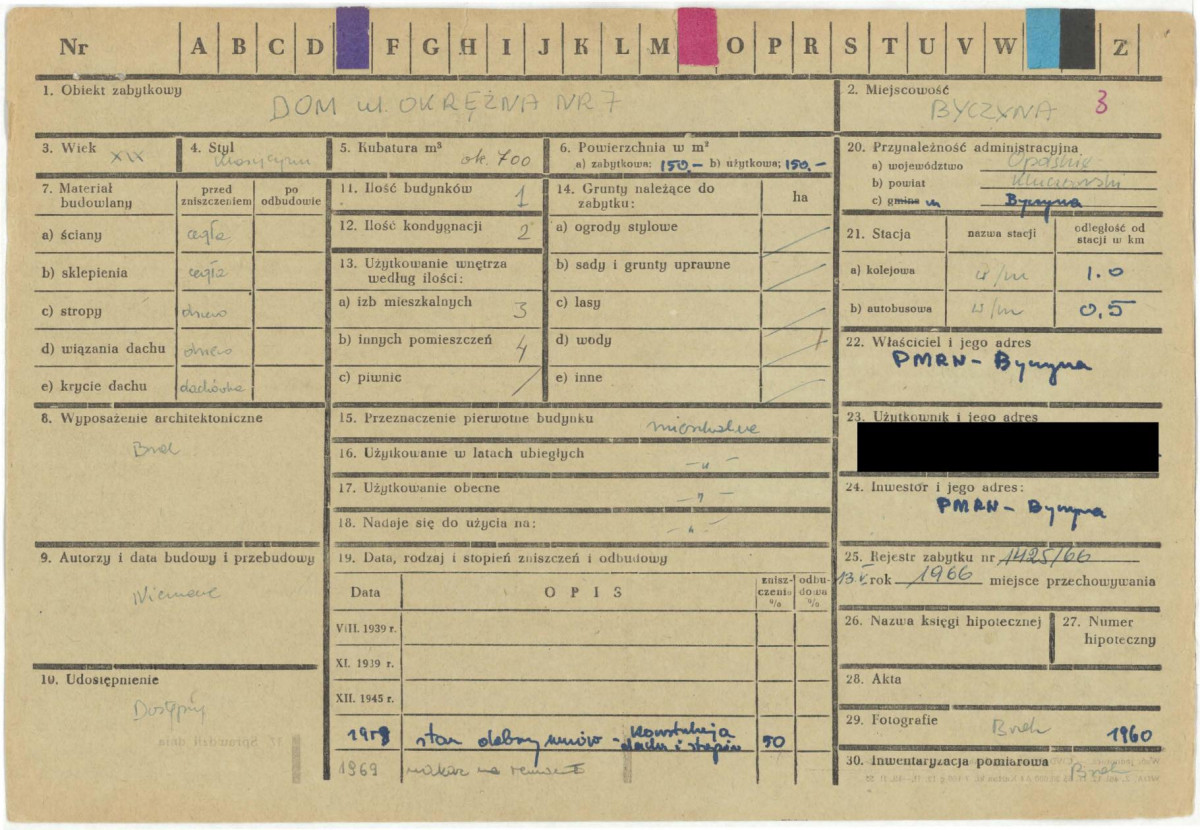 Nr A B C D F G H I J K L M O P R S T U V W Z
1. Obiekt zabytkowy
DOM ul. OKRĘŻNA NR 7
2. Miejscowość
BYCZYNA 3
3. Wiek XIX
4. Styl klasycyzm
5. Kubatura m³ ok. 700
6. Powierzchnia w m²
a) zabytkowa: 150.- b) użytkowa: 150.-
7. Materiał budowlany
przed zniszczeniem
po odbudowie
a) ściany cegła
b) sklepienia cegła
c) stropy drewno
d) wiązania dachu drewno
e) krycie dachu dachówka
8. Wyposażenie architektoniczne
Brak
9. Autorzy i data budowy i przebudowy
Nieznane
10. Udostępnienie
Dostępny
11. Ilość budynków 1
12. Ilość kondygnacji 2
13. Użytkowanie wnętrza według ilości:
a) izb mieszkalnych 3
b) innych pomieszczeń 4
c) piwnic /
14. Grunty należące do zabytku:
ha
a) ogrody stylowe
b) sady i grunty uprawne
c) lasy
d) wody
e) inne
15. Przeznaczenie pierwotne budynku mieszkalne
16. Użytkowanie w latach ubiegłych -"-
17. Użytkowanie obecne -"-
18. Nadaje się do użycia na: -"-
19. Data, rodzaj i stopień zniszczeń i odbudowy
Data
OPIS
zniszczenia %
odbudowa %
VIII. 1939 r.
XI. 1939 r.
XII. 1945 r.
stan dobry murów - Konstrukcja
dachu i stropów 50
1969 nakaz na remont
20. Przynależność administracyjna
a) województwo Opolskie
b) powiat Kluczborski
c) gmina m Byczyna
21. Stacja
nazwa stacji
odległość od stacji w km
a) kolejowa w/m 1.0
b) autobusowa w/m 0,5
22. Właściciel i jego adres
PMRN - Byczyna
23. Użytkownik i jego adres
24. Inwestor i jego adres:
PMRN - Byczyna
25. Rejestr zabytku nr 1425/66
rok 1966 miejsce przechowywania
26. Nazwa księgi hipotecznej
27. Numer hipoteczny
28. Akta
29. Fotografie Brak 1960
30. Inwentaryzacja pomiarowa Brak